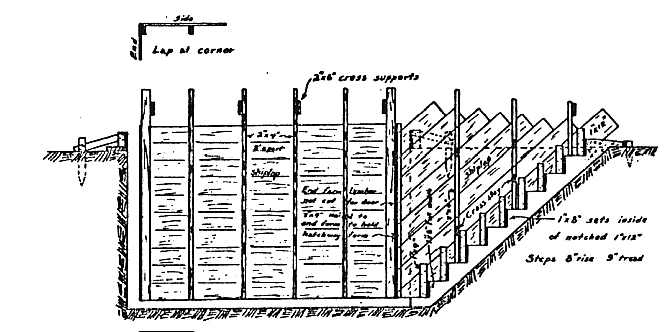 Side
End
Lap at corner
2"x6" cross supports
2"x4"
2' apart
Shiplap
End form lumber
not cut for door
2"x4" nailed to
end form to hold
hatchway form
Shiplap
Cross ties
1"x12"
1"x8" sets inside
of notched 1"x12"
Steps 8" rise 9" tread